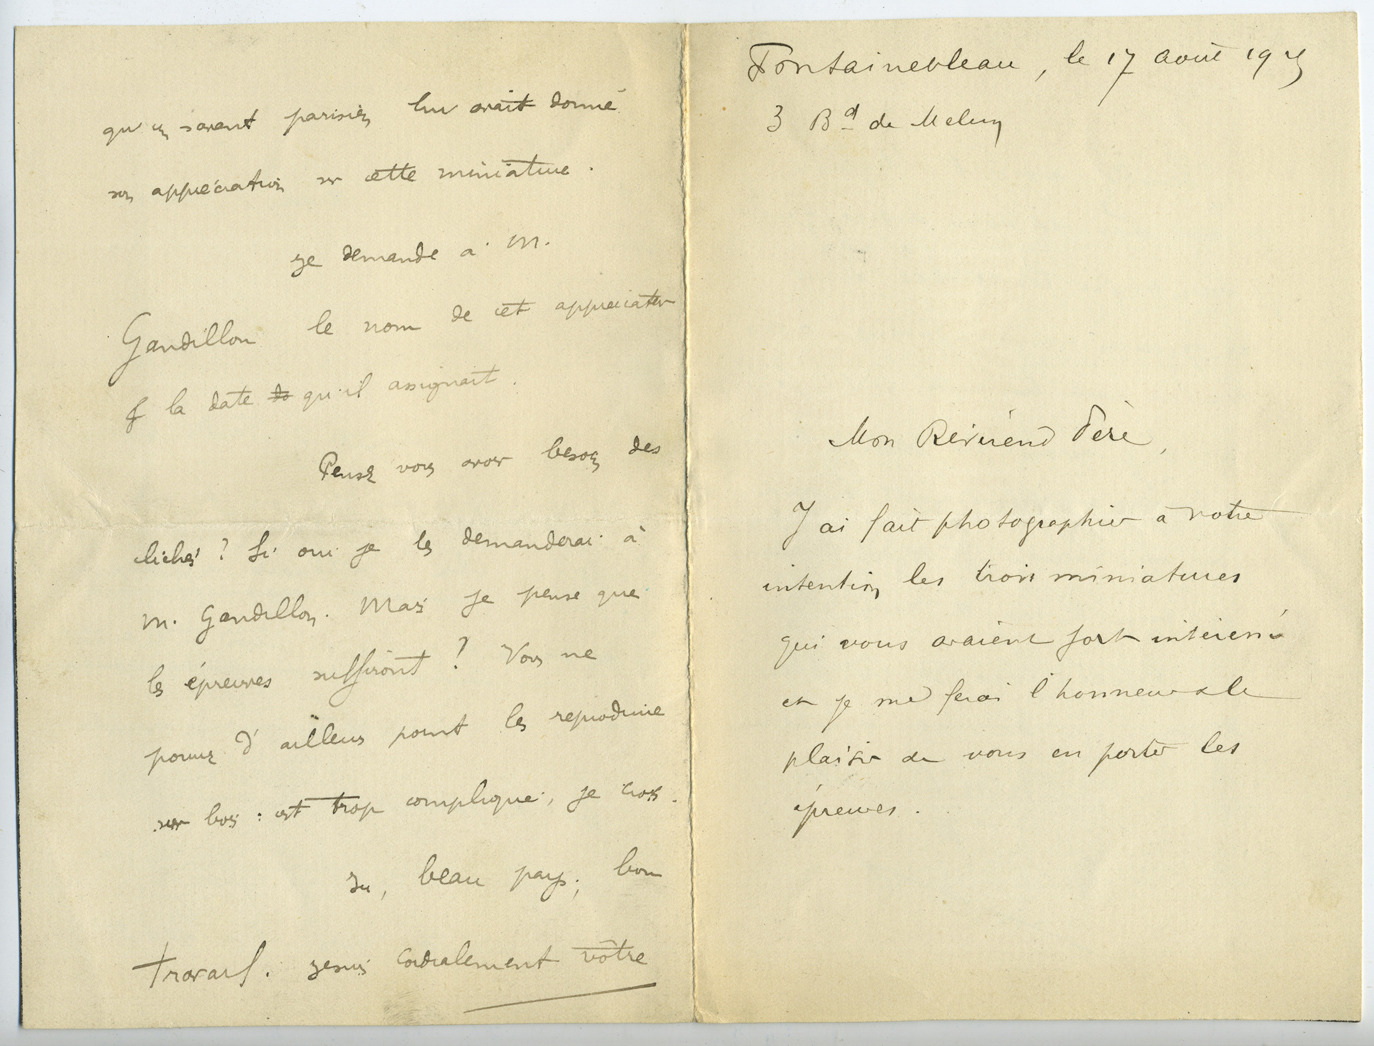 Fontainebleau, le 17 août 19
3 Bd de Melun
Mon Révérend Père,
J'ai fait photographier à votre
intention les trois miniatures
qui vous avaient fort intéressé
et je me ferai l'honneur & le
plaisir de vous en porter les
épreuves.
qu'un savant parisien lui avait donné
son appréciation sur cette miniature.
Je demande à M.
Gandillon le nom de cet appréciateur
& la date qu'il assignait.
Pensez vous avoir besoin des
clichés ? Si oui je les demanderai à
M. Gandillon. Mais je pense que
les épreuves suffiront ? Vous ne
pouvez d'ailleurs point les reproduire
sur bois : c'est trop compliqué, je crois.
Ici, beau pays, bon
travail. Je suis cordialement vôtre